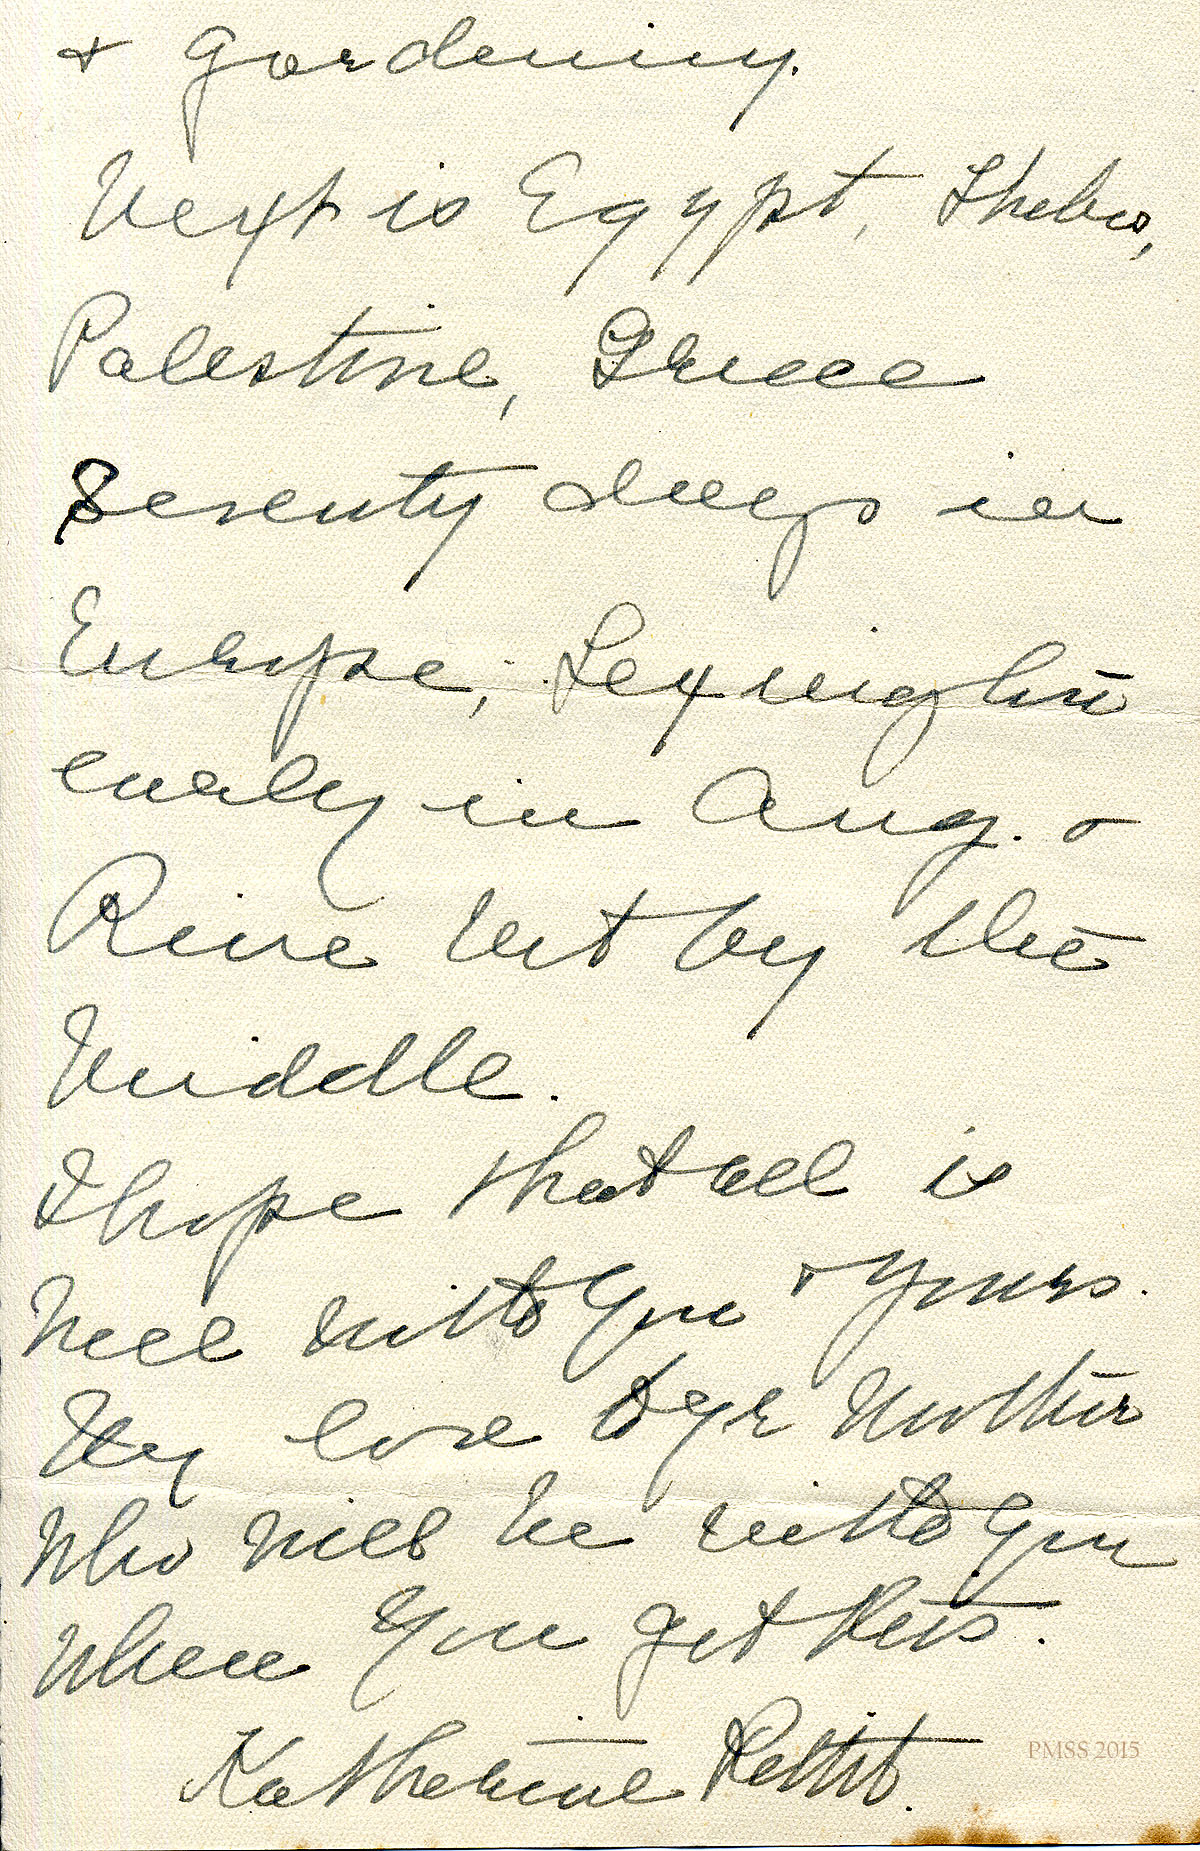 & gardening.
Next is Egypt, Thebes,
Palestine, Greece
Seventy days in
Europe, Lexington
early in Aug. &
Pine Mt by the
Middle.
I hope that all is
well with you & yours.
My love to yr Mother
who will be with you
when you get this.
Katherine Pettit.
PMSS 2015